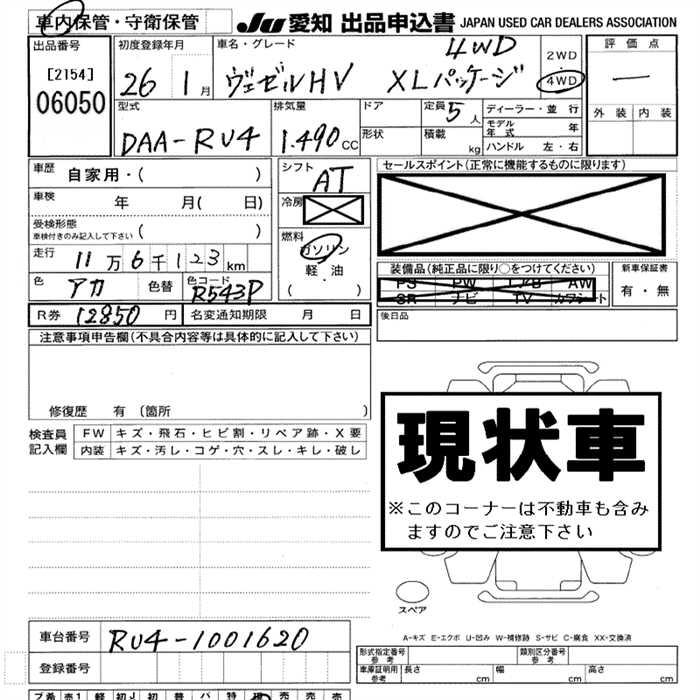 車内保管・守衛保管
JU 愛知 出品申込書 JAPAN USED CAR DEALERS ASSOCIATION
出品番号
[2154]
06050
初度登録年月
26 1月
車名・グレード
4WD
ヴェゼルHV XLパッケージ
2WD
4WD
評価点
—
外装 内装
型式
DAA-RU4
排気量
1.490CC
ドア
形状
定員 5人
積載 kg
ディーラー・並行
モデル年式 年
ハンドル 左・右
車歴 自家用・( )
車検 年 月( 日)
受検形態
車検付きのみ記入して下さい ( )
走行 11万6千123km
色 アカ 色替 色コード R543P
シフト AT
冷房
燃料
ガソリン
軽・油
・( )
セールスポイント(正常に機能するものに限ります)
装備品(純正品に限り○をつけてください)
PS PW エアB AW
SR ナビ TV カワシート
新車保証書
有・無
R券 12850円 名変通知期限 月 日
後日品
注意事項申告欄(不具合内容等は具体的に記入して下さい)
修復歴 有(箇所 )
検査員記入欄
FW キズ・飛石・ヒビ割・リペア跡・X要
内装 キズ・汚レ・コゲ・穴・スレ・キレ・破レ
現状車
※このコーナーは不動車も含み
ますのでご注意下さい
スペア
A-キズ E-エクボ U-凹み W-補修跡 S-サビ C-腐食 XX-交換済
車台番号 RU4-1001620
登録番号
形式指定番号 参考
類別区分番号 参考
車庫証明用 参考 長さ cm 幅 cm 高さ cm